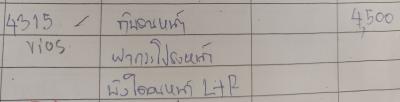 4315 / กันชนหน้า 4,500
vios ฝากระโปรงหน้า
บังโคลนหน้า L+R